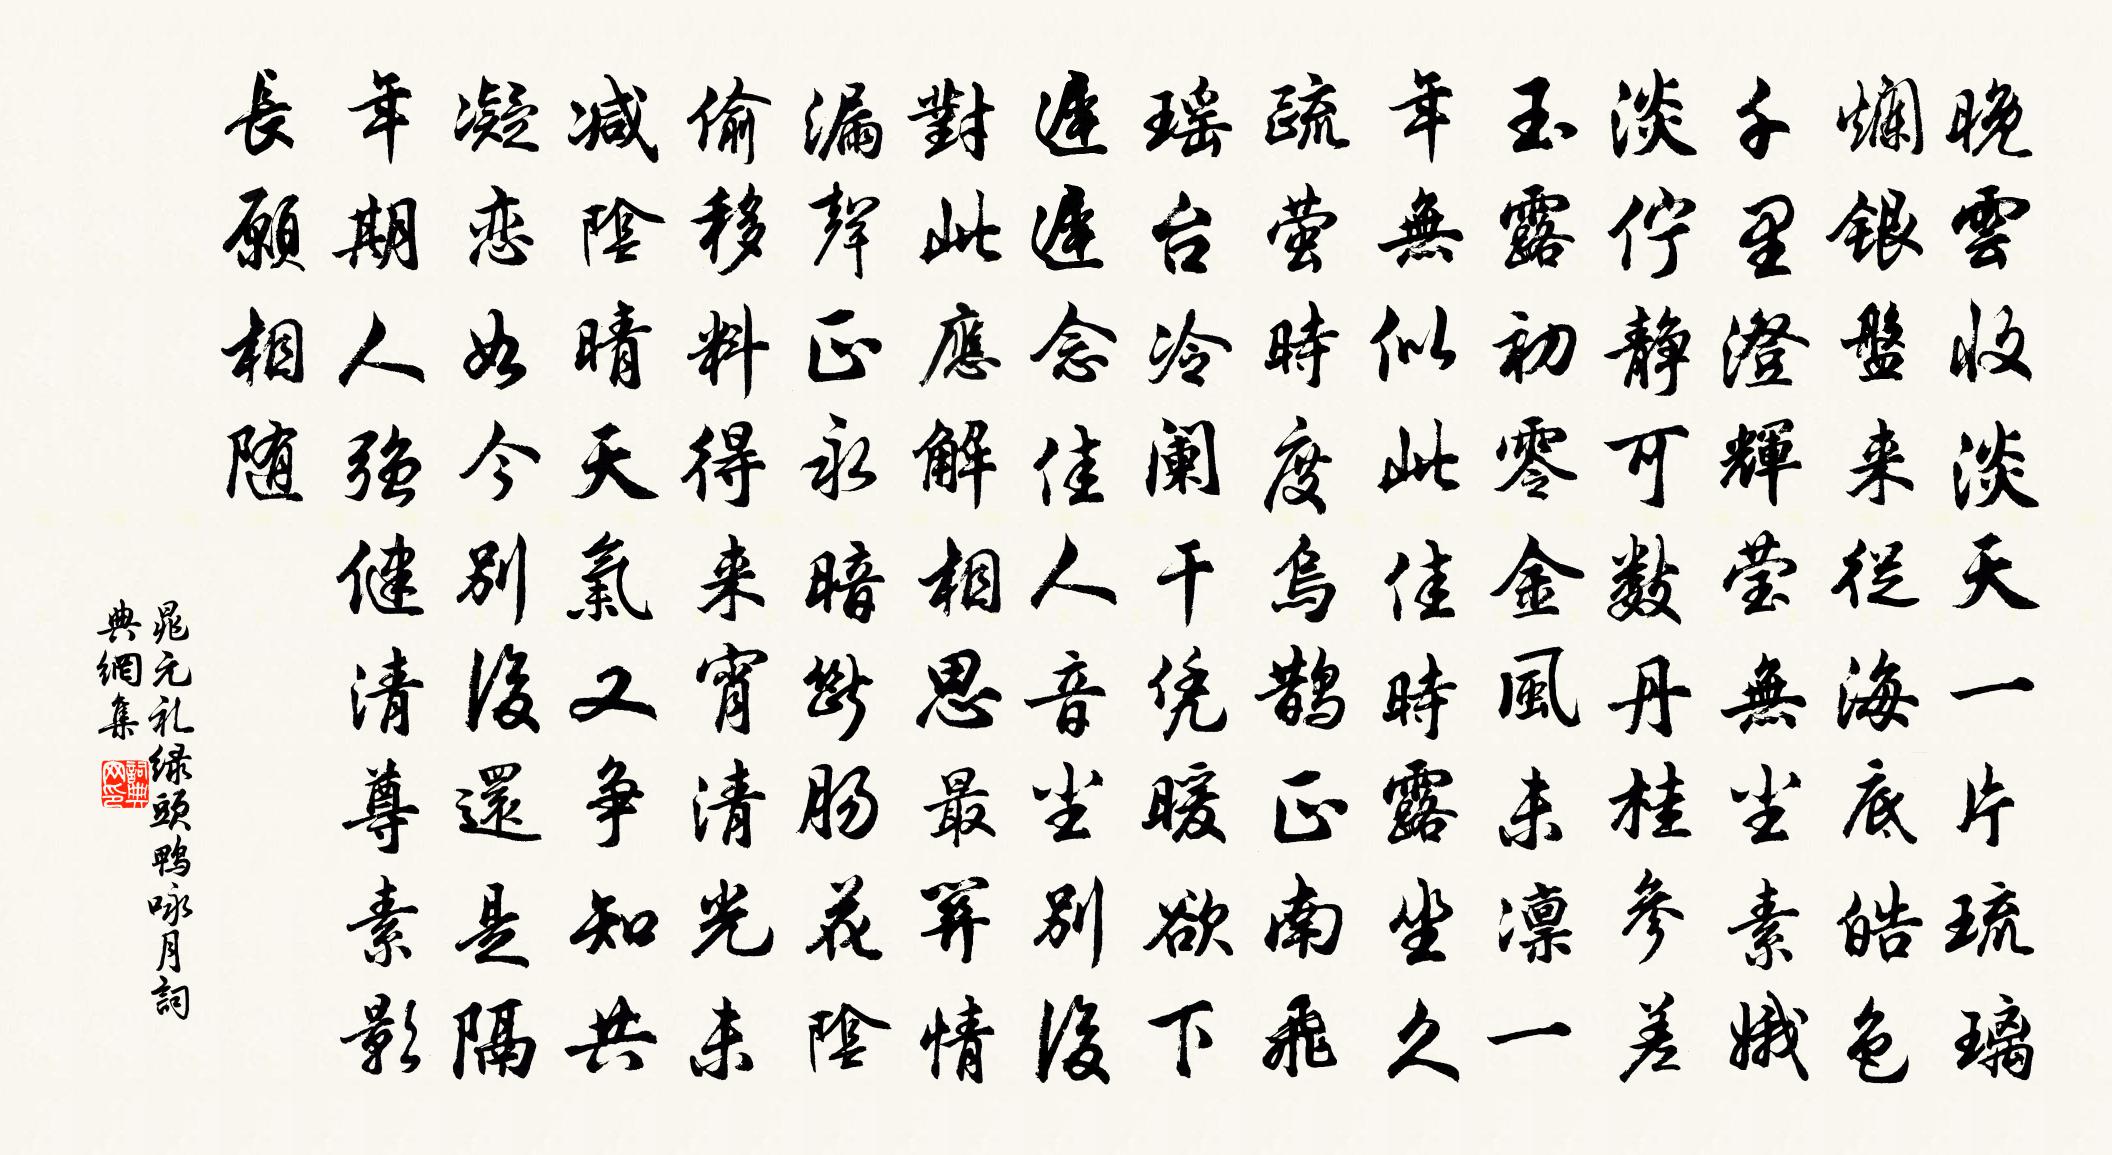 晚雲收淡天一片琉璃
爛銀盤来從海底皓色
千里澄輝莹無尘素娥
淡佇静可数丹桂参差
玉露初零金風未凛一
年無似此佳時露坐久
疏萤時度烏鹊正南飛
瑶台冷阑干凭暖欲下
遲遲念佳人音尘别後
對此應解相思最關情
漏聲正永暗断肠花陰
偷移料得来宵清光未
减陰晴天氣又争知共
凝恋如今别後還是隔
年期人强健清尊素影
長願相随
晁元礼绿頭鸭咏月詞
典網集
詞典网印